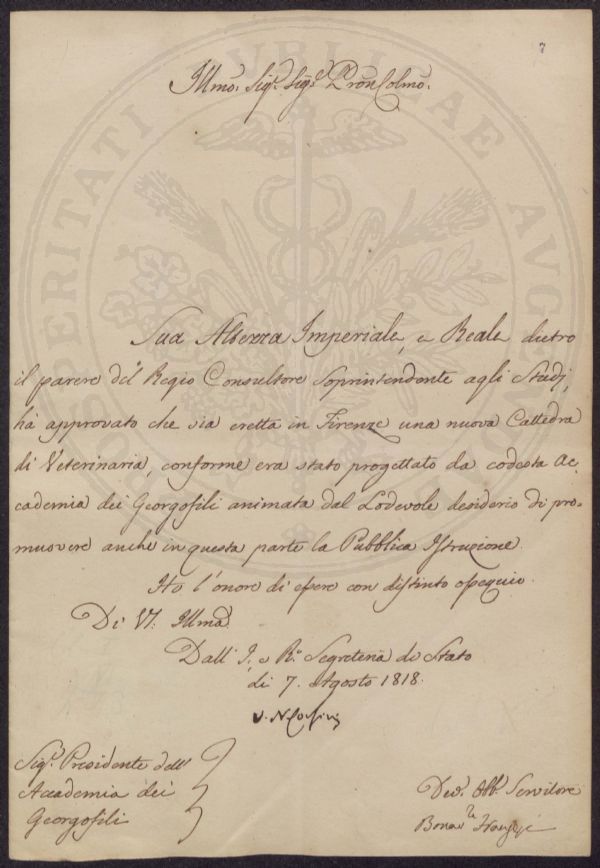 7
Illmo. Sigr. Sigr. Pron Colmo.
Sua Altezza Imperiale, e Reale dietro
il parere del Regio Consultore Soprintendente agli Studj,
hà approvato che sia eretta in Firenze una nuova Cattedra
di Veterinaria, conforme era stato progettato da codesta Ac-
cademia dei Georgofili animata dal Lodevole desiderio di pro-
muovere anche in questa parte la Pubblica Istruzione.
Ho l'onore di essere con distinto ossequio.
Di VS. Illma.
Dall' I. e R. Segreteria di Stato
li 7. Agosto 1818.
V. N. Corsini
Sigr. Presidente dell'
Accademia dei
Georgofili
Dev. Obb. Servitore
PROSPERITATI PUBLICAE AUGENDAE